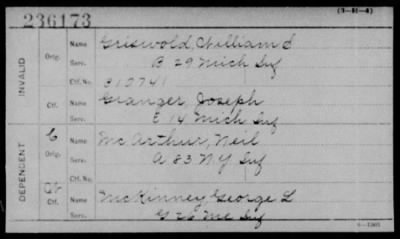 (3-H-4)
236173
INVALID
Orig.
Name Griswold, William S
Serv. B 29 Mich Inf
Ctf. No. 310741
Ctf.
Name Granger, Joseph
Serv. E 14 Mich Inf
DEPENDENT
C
Orig.
Name Mc Arthur, Neil
Serv. A 83 N.Y Inf
Ctf.
Name McKinney George L
Serv. G 26 Me Inf
6-1305